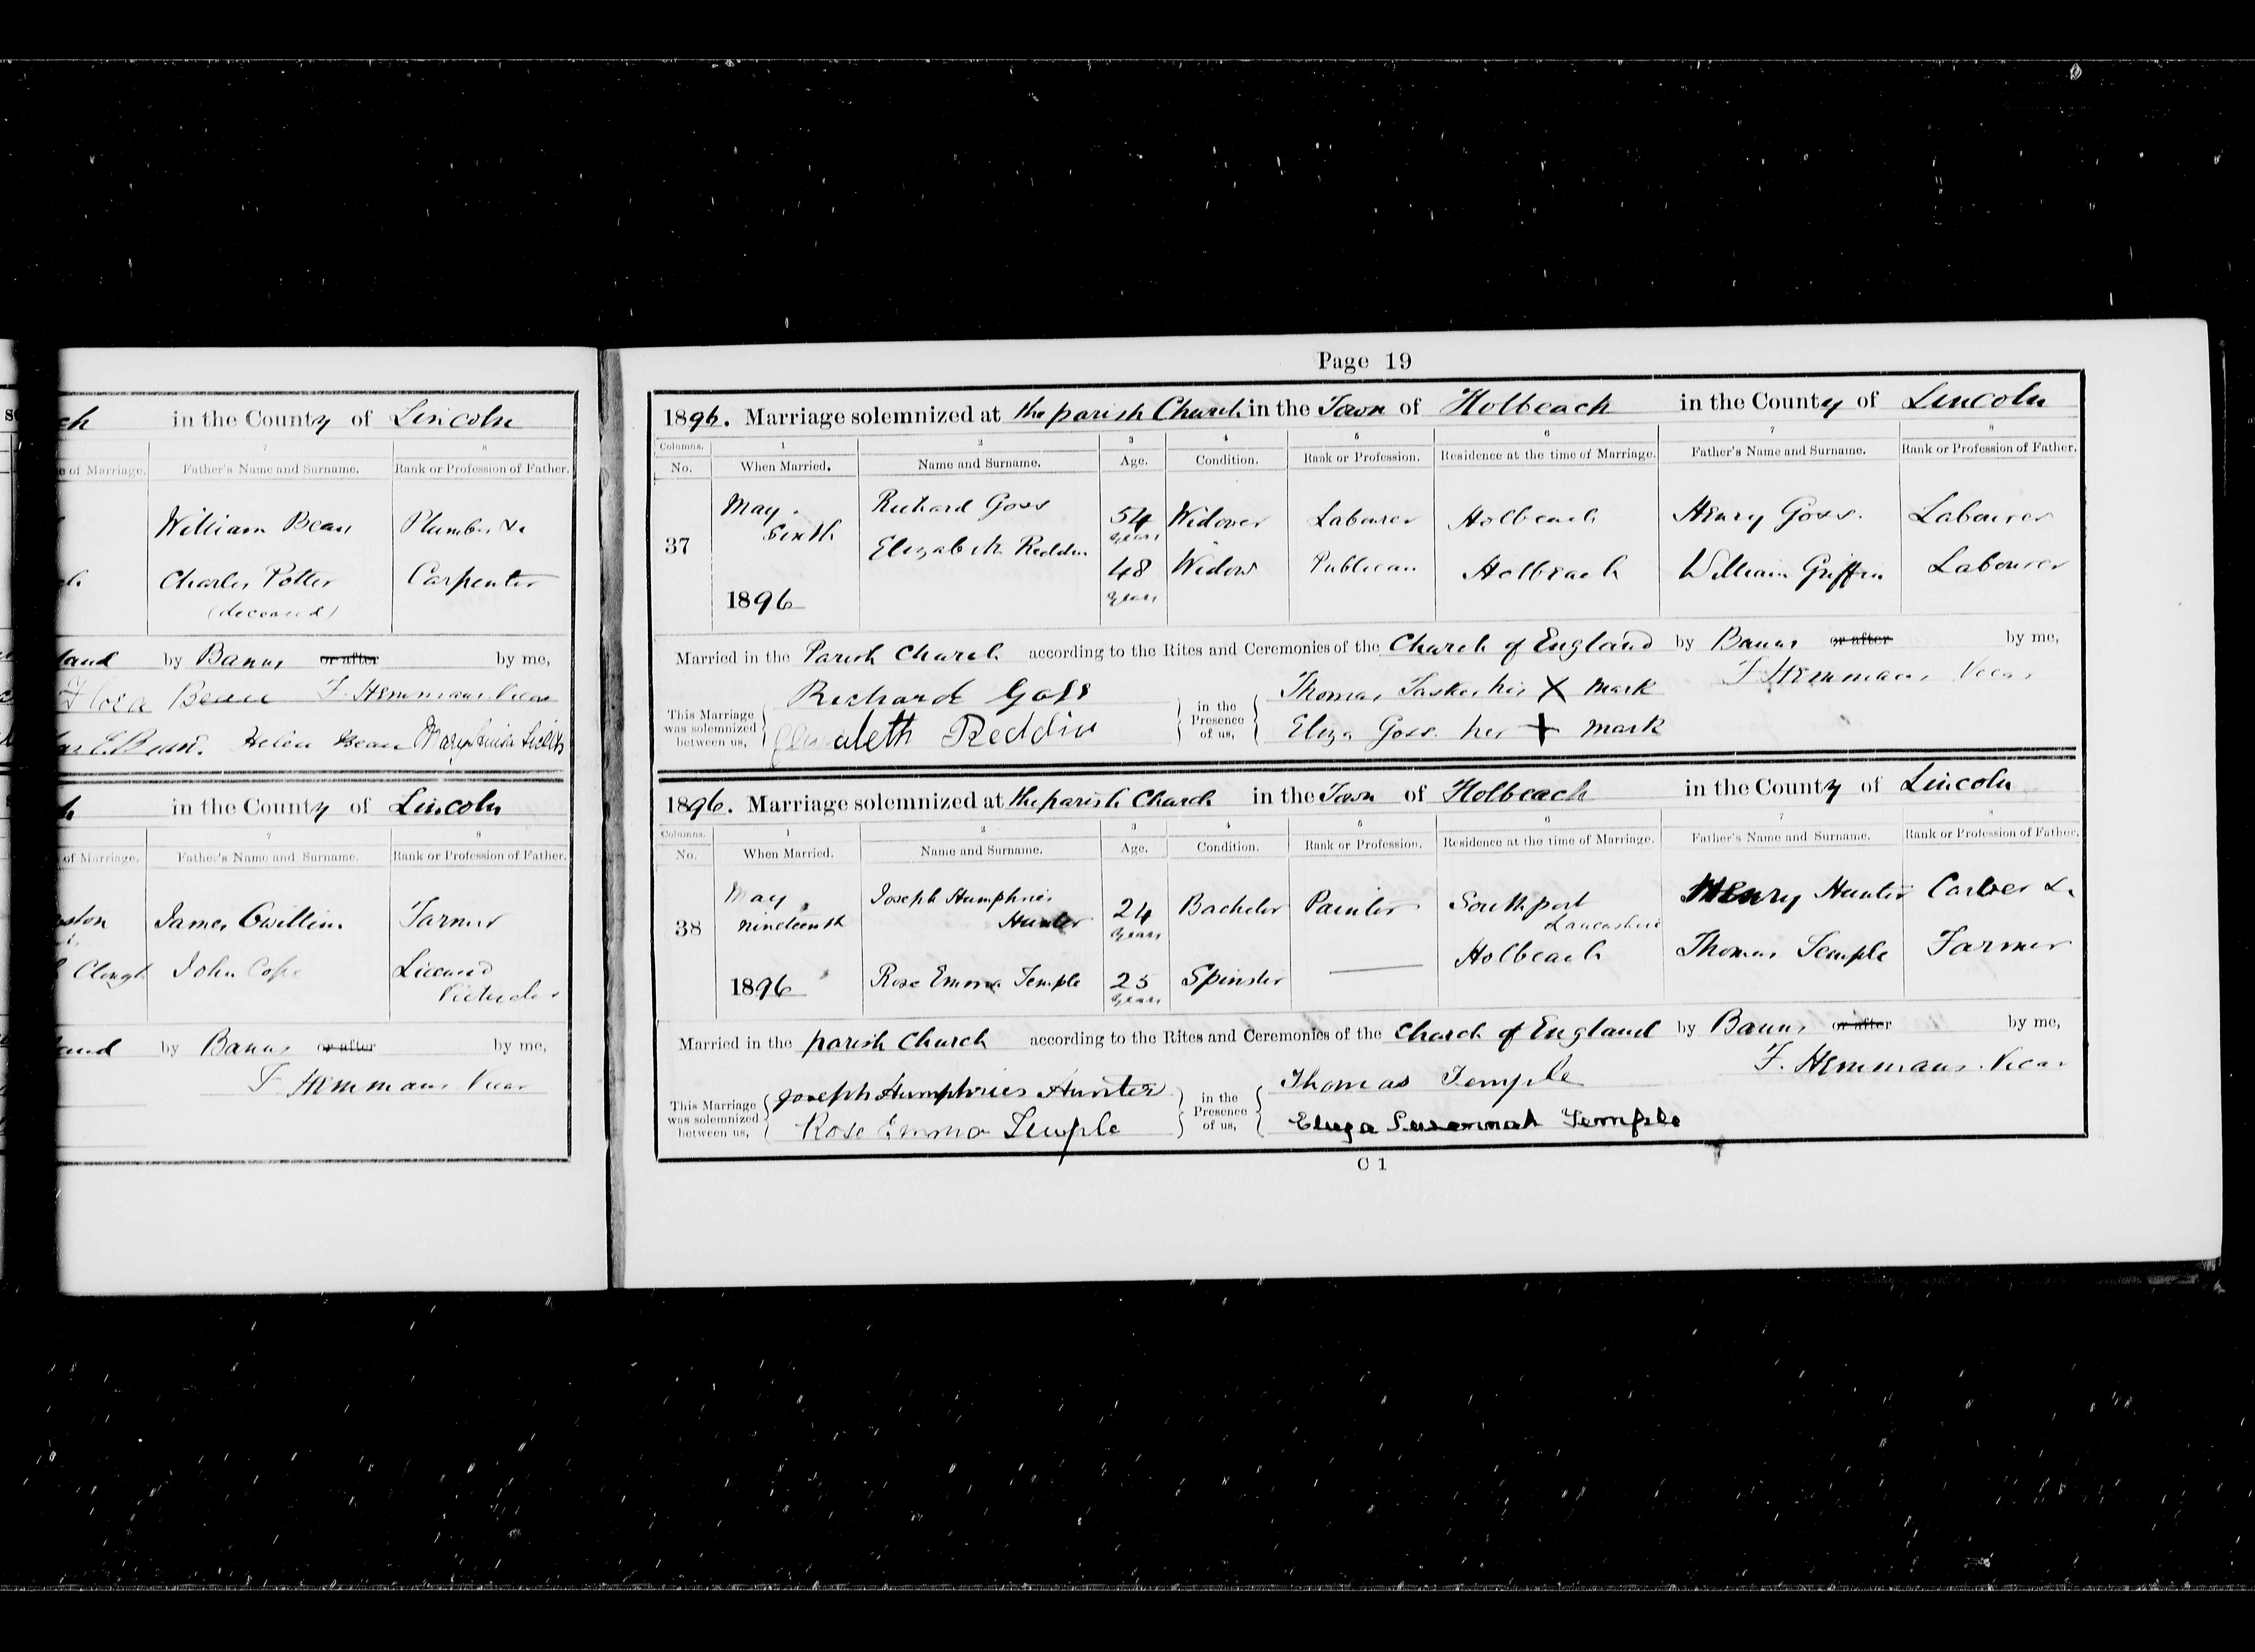 in the County of Lincoln
7 8
of Marriage. Father's Name and Surname. Rank or Profession of Father.
William Bean Plumber &c
Charles Potter Carpenter
(deceased)
by Banns or after by me,
Flora Bean F. Hemmans. Vicar
Helen Bean
in the County of Lincoln
7 8
of Marriage. Father's Name and Surname. Rank or Profession of Father.
James Gwillim Farmer
John Cope Licensed
Victualler
by Banns or after by me,
F Hemmans. Vicar
Page 19
1896. Marriage solemnized at the parish Church in the Town of Holbeach in the County of Lincoln
Columns. 1 2 3 4 5 6 7 8
No. When Married. Name and Surname. Age. Condition. Rank or Profession. Residence at the time of Marriage. Father's Name and Surname. Rank or Profession of Father.
37 May Sixth 1896
Richard Goss 54 years Widower Labourer Holbeach Henry Goss. Labourer
Elizabeth Reddin 48 years Widow Publican Holbeach William Griffin Labourer
Married in the Parish Church according to the Rites and Ceremonies of the Church of England by Banns or after by me,
F Hemmans Vicar
This Marriage was solemnized between us,
Richard Goss
Elizabeth Reddin
in the Presence of us,
Thomas Tasker his X mark
Eliza Goss. her + mark
1896. Marriage solemnized at the parish Church in the Town of Holbeach in the County of Lincoln
Columns. 1 2 3 4 5 6 7 8
No. When Married. Name and Surname. Age. Condition. Rank or Profession. Residence at the time of Marriage. Father's Name and Surname. Rank or Profession of Father.
38 May nineteenth 1896
Joseph Humphries Hunter 24 years Bachelor Painter Southport Lancashire Henry Hunter Carver &c
Rose Emma Temple 25 years Spinster Holbeach Thomas Temple Farmer
Married in the parish Church according to the Rites and Ceremonies of the Church of England by Banns or after by me,
F. Hemmans. Vicar
This Marriage was solemnized between us,
Joseph Humphries Hunter
Rose Emma Temple
in the Presence of us,
Thomas Temple
Eliza Susannah Temple
C 1